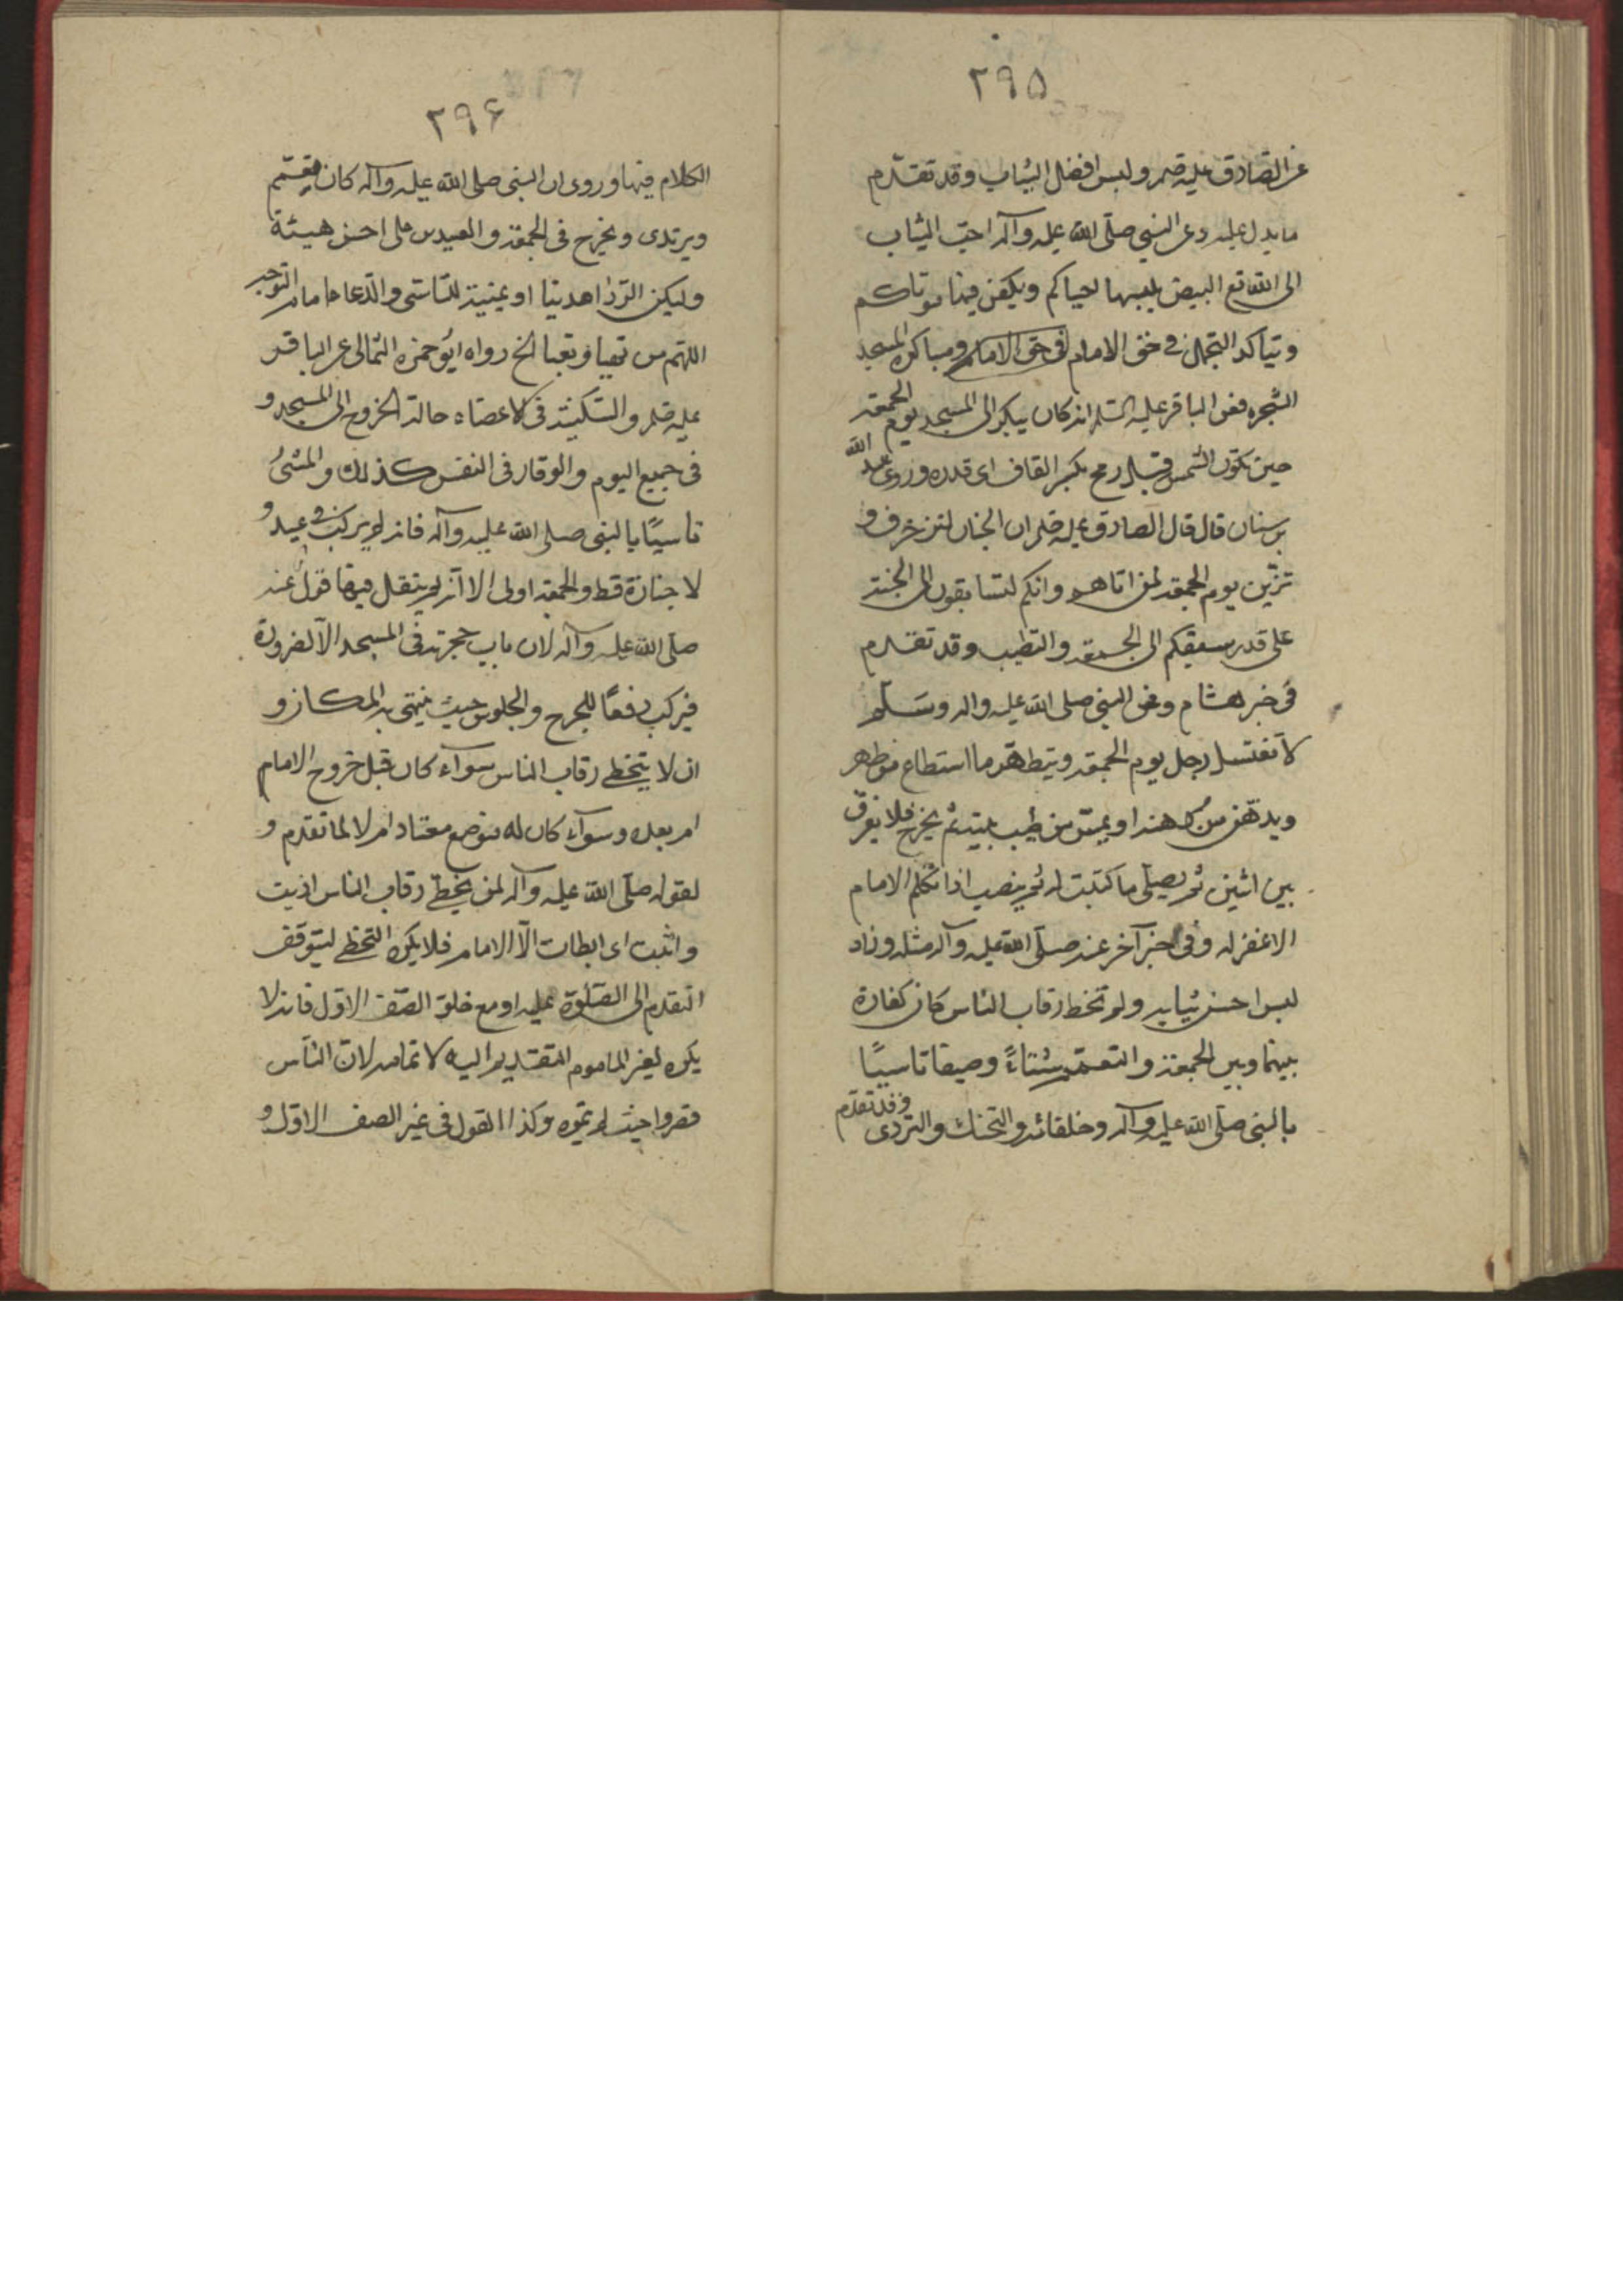 ٢٩۵
عن الصادق عليه صلم ولبس افضل الثياب وقد تقدّم
ما يدل عليه وعن النبي صلّى الله عليه وآله احبّ الثياب
الى الله تع البيض يلبسها احياكم ويكفن فيها موتاكم
ويتأكد التجمل في حق الامام في حق الامام ومباكرة المسجد
الشجره فعن الباقر عليه السلم انه كان يبكر الى المسجد يوم الجمعه
حين تكون الشمس قيد رمح بكسر القاف اى قدره وروى عبد الله
بن سنان قال قال الصادق عليه صلم ان الجنان لتزخرف و
تزيّن يوم الجمعه لمن اتاها وانكم لتسابقون الى الجنة
على قدر سبقكم الى الجمعه والتطيب وقد تقدم
فى خبر هشام وعن النبي صلى الله عليه واله وسلم
لا تغتسل رجل يوم الجمعه ويتطهّر ما استطاع من طهر
ويدّهن من دهنه او يمسّ من طيب بيته ثم يخرج فلا يفرق
بين اثنين ثم يصلّى ما كتبت له ثم ينصب اذا تكلم الامام
الا غفر له وفى خبر آخر عنه صلّى الله عليه وآله مثله وزاد
لبس احسن ثيابه ولم تخط رقاب الناس كان كفارة
بينها وبين الجمعة والتعمّم شتاءً وصيفا تاسيًا
بالنبى صلّى الله عليه وآله وخلفائه والتحنك والتردى وقد تقدّم
٢٩۶
الكلام فيها وروى ان النبى صلى الله عليه وآله كان يعتمّ
ويرتدى ويخرج فى الجمعة والعيدين على احسن هيئة
وليكن الردا عدنيا او يمنية للتاسى والدعا امام التوجه
اللهم من تهيا وتعبا الخ رواه ابو حمزه الثمالى عن الباقر
عليه صلم والسكينة فى الاعضاء حالة الخروج الى المسجد و
فى جميع اليوم والوقار فى النفس كذلك والمشىُ
تاسيًا بالنبى صلى الله عليه وآله فانه لم يركب فى عيد و
لا جنازة قط والجمعه اولى الا انه لم ينقل فيها قولُ عنه
صلّى الله عليه وآله لان باب حجرته فى المسجد الّا لضرورة
فيركب دفعًا للحرج والجلوس حيث ينتهى به المكان و
ان لا يتخطى رقاب الناس سوآء كان قبل خروج الامام
ام بعده وسوآء كان له موضع معتاد ام لا لما تقدم و
لقوله صلّى الله عليه وآله لمن يخطّى رقاب الناس اذيت
وانيت اى ابطات الّا الامام فلا يكره التخطى ليتوقف
التقدم الى الصّلوة عليه او مع خلو الصّف الاوّل فانه لا
يكره لغير الماموم التقديم اليه لاتمامه لان الناس
قصروا حيث لم يتمّوه وكذا القول فى غير الصف الاوّل و